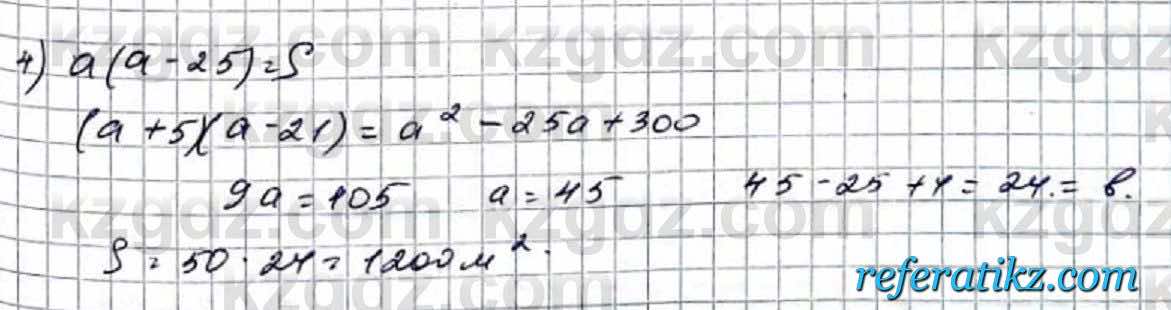 4) a(a-25)=S
(a+5)(a-21)=a²-25a+300
9a=105 a=45 45-25+4=24.=в.
S=50·24=1200м².
kzgdz.com kzgdz.com
kzgdz.com kzgdz.com
referatikz.com